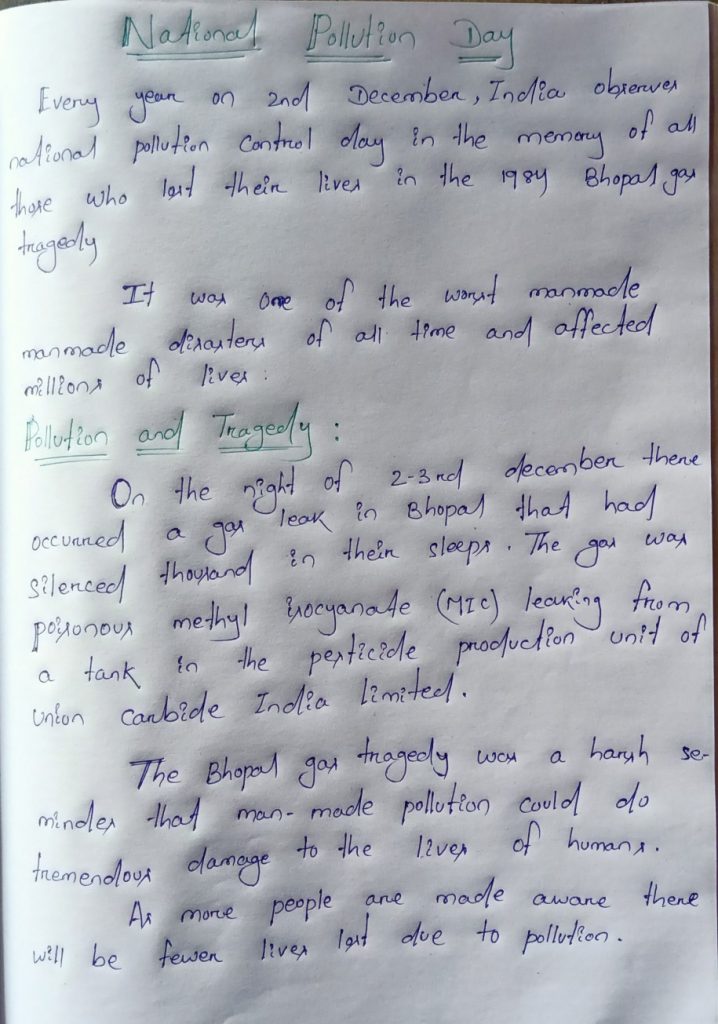 National Pollution Day
Every year on 2nd December, India observes
national pollution control day in the memory of all
those who lost their lives in the 1984 Bhopal gas
tragedy
It was one of the worst manmade
manmade disasters of all time and affected
millions of lives.
Pollution and Tragedy :
On the night of 2-3rd december there
occurred a gas leak in Bhopal that had
silenced thousand in their sleeps. The gas was
poisonous methyl isocyanate (MIC) leaking from
a tank in the pesticide production unit of
union carbide India limited.
The Bhopal gas tragedy was a harsh se-
minder that man-made pollution could do
tremendous damage to the lives of humans.
As more people are made aware there
will be fewer lives lost due to pollution.